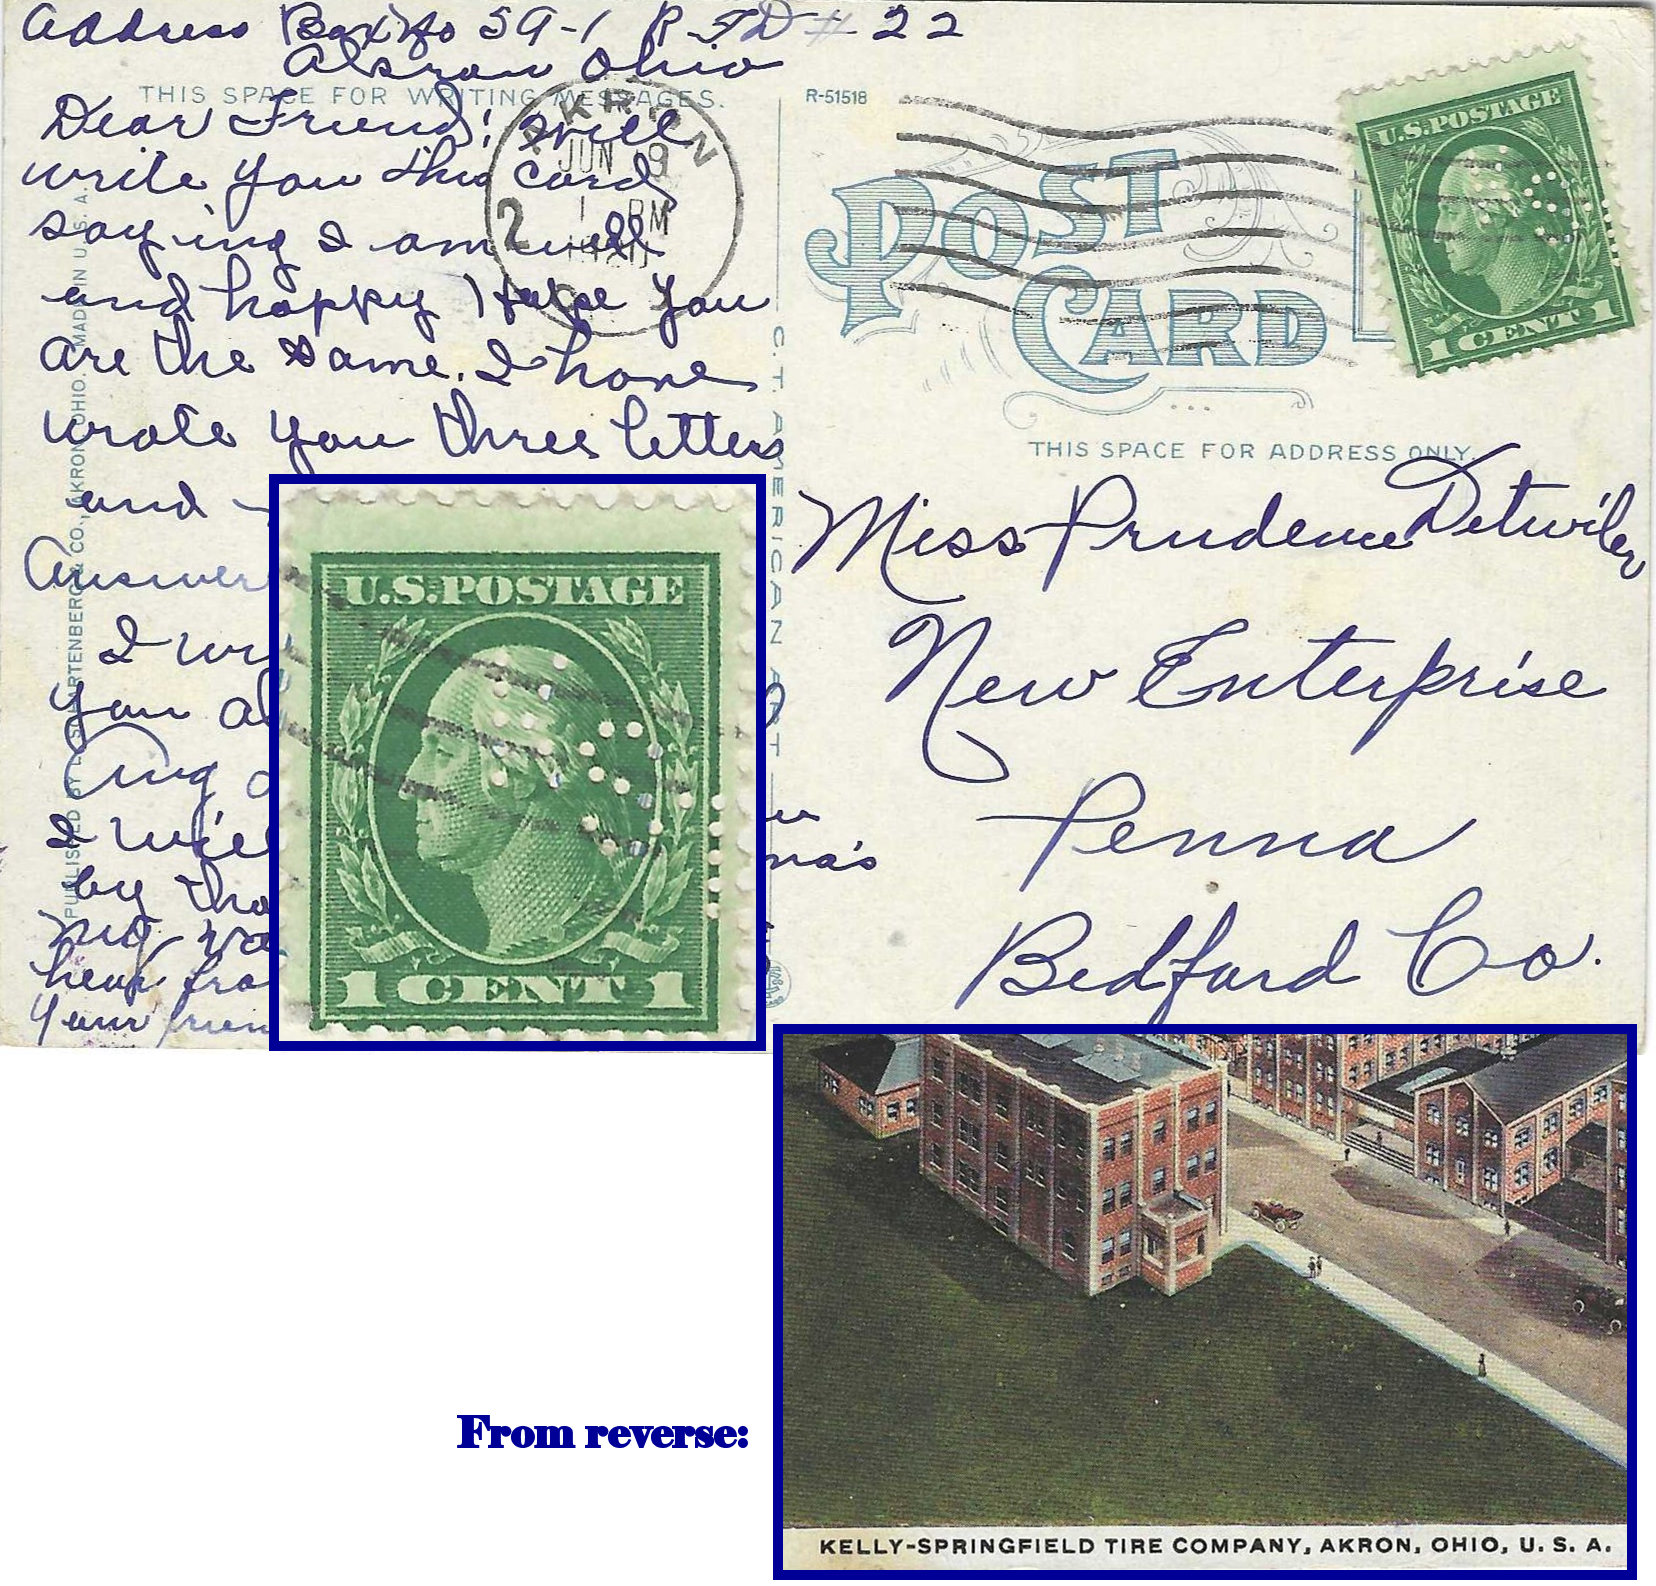 Address Box No 59-1 R-F-D # 22
Akron Ohio
THIS SPACE FOR WRITING MESSAGES.
Dear Friend; I will
write you this card
saying I am well
and happy I hope you
are the same. I have
wrote you three letters
and
Answer
I wr
you al
I will
by tha
hear fro
Your frien
PUBLISHED BY I. SCHWARTENBERG & CO., AKRON, OHIO. MADE IN U. S. A.
C. T. AMERICAN ART
AKRON
JUN 9
1 PM
1920
2
O
R-51518
POST CARD
THIS SPACE FOR ADDRESS ONLY.
Miss Prudence Detwiler
New Enterprise
Penna
Bedford Co.
U.S. POSTAGE
1 CENT 1
U.S. POSTAGE
1 CENT 1
From reverse:
KELLY-SPRINGFIELD TIRE COMPANY, AKRON, OHIO, U. S. A.